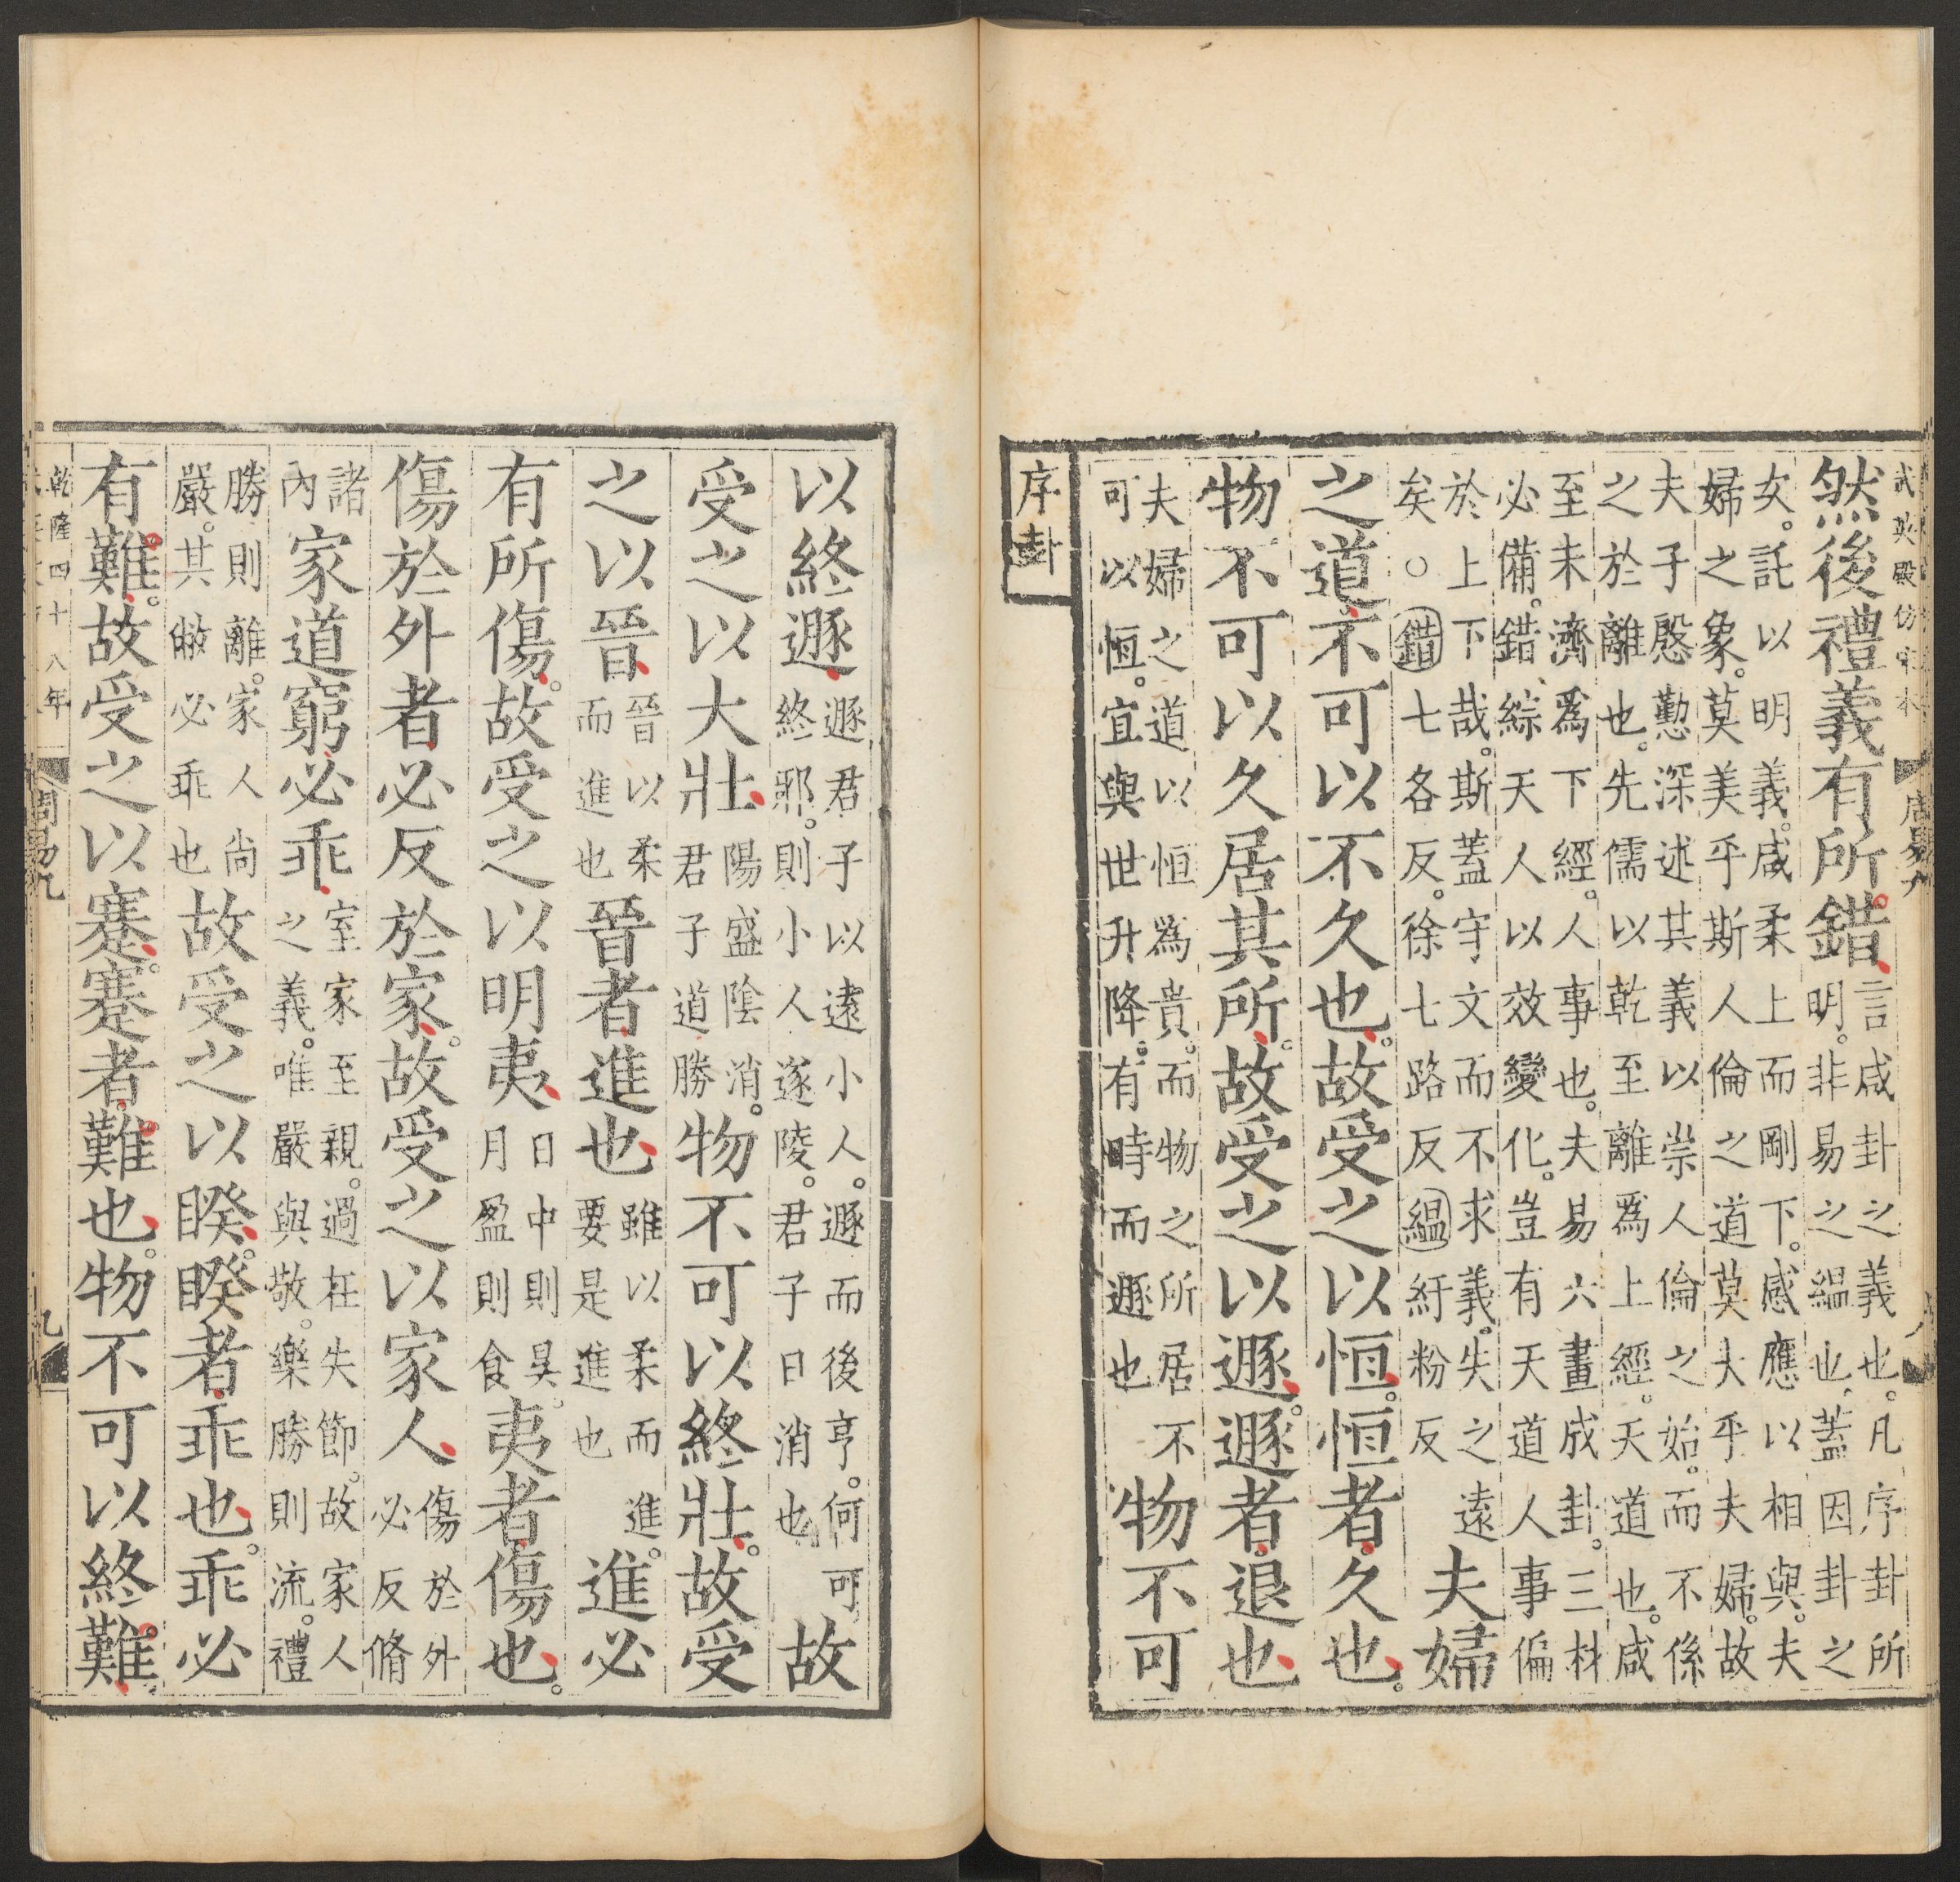 武英殿仿宋本
周易九
八
然後禮義有所錯
言咸卦之義也。凡序卦所
明。非易之縕也、蓋因卦之
次。託以明義。咸柔上而剛下。感應以相與。夫
婦之象。莫美乎斯人倫之道莫大乎夫婦。故
夫子慇懃深述其義以崇人倫之始。而不係
之於離也。先儒以乾至離爲上經。天道也。咸
至未濟爲下經。人事也。夫易六畫成卦。三材
必備。錯綜天人以效變化。豈有天道人事偏
於上下哉。斯蓋守文而不求義。失之遠
矣。○錯七各反。徐七路反縕紆粉反
夫婦
之道不可以不久也。故受之以恒。恒者久也。
物不可以久居其所。故受之以遯。遯者退也
夫婦之道以恒爲貴。而物之所居不
可以恒。宜與世升降。有時而遯也
物不可
序卦
以終遯
遯君子以遠小人。遯而後亨。何可
終邪。則小人遂陵。君子日消也
故
受之以大壯
陽盛陰消。
君子道勝
物不可以終壯。故受
之以晉
晉以柔
而進也
晉者進也
雖以柔而進。
要是進也
進必
有所傷。故受之以明夷
日中則昃。
月盈則食
夷者傷也。
傷於外者必反於家。故受之以家人
傷於外
必反脩
諸
內
家道窮必乖
室家至親。過在失節。故家人
之義。唯嚴與敬。樂勝則流。禮
勝則離。家人尚
嚴。其敝必乖也
故受之以睽。睽者乖也。乖必
有難。故受之以蹇。蹇者難也。物不可以終難
乾隆四十八年
周易九
九